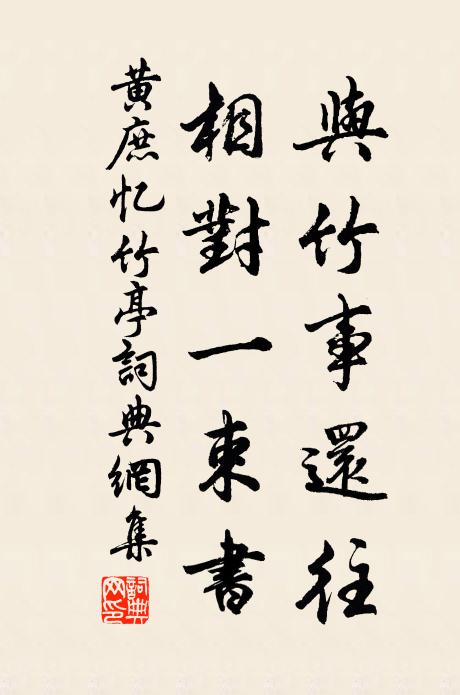 與竹事還往
相對一束書
黃庶忆竹亭詞典網集
詞典網印